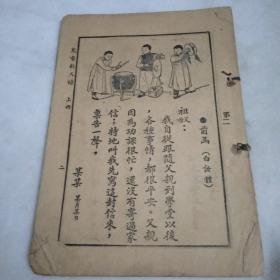 第二
●前函（白話體）
祖
我自從跟隨父親到學堂以後
，各種事情，都很平安。父親
因為功課很忙，還沒有寄過家
信；特地叫我先寫這封信來，
稟告一聲。
某某 某月某日
上冊
二